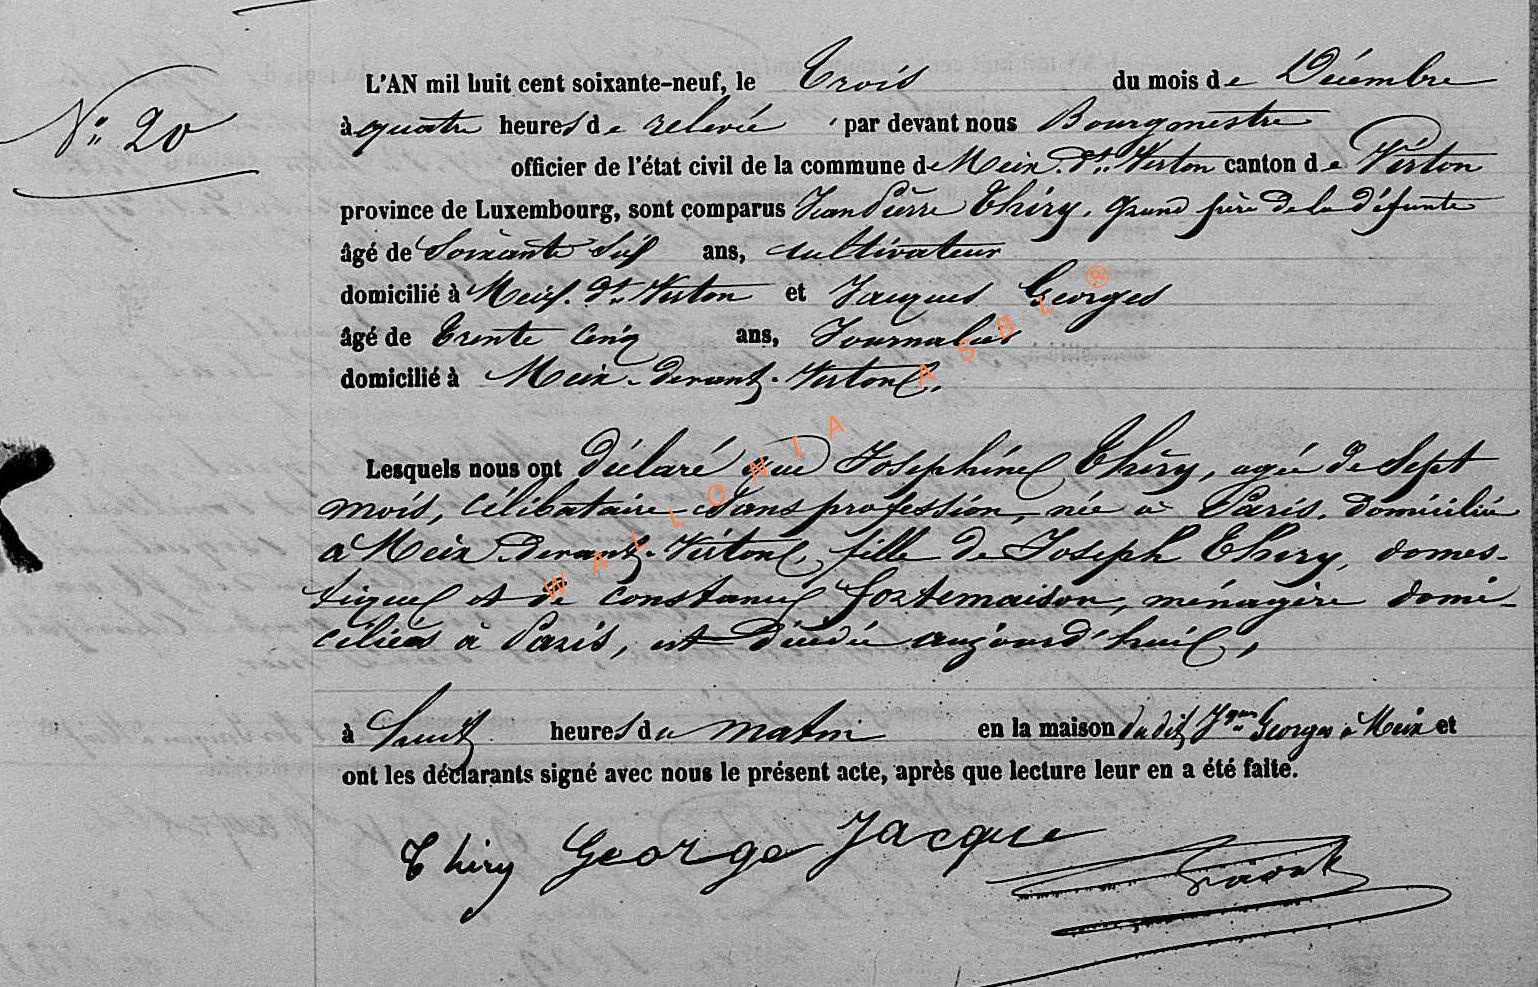 N° 20
L'AN mil huit cent soixante-neuf, le Trois du mois de Décembre
à quatre heures de relevée par devant nous Bourgmestre
officier de l'état civil de la commune de Meix-dt-Virton canton de Virton
province de Luxembourg, sont comparus Jean Pierre Thiry, grand père de la défunte
âgé de Soixante ans, cultivateur
domicilié à Meix-dt-Virton et Jacques Georges
âgé de trente cinq ans, Journalier
domicilié à Meix-devant-Virton,
Lesquels nous ont déclaré que Joséphine Thiry, agée de Sept
mois, célibataire sans profession, née à Paris, domiciliée
à Meix-devant-Virton, fille de Joseph Thiry, domes-
tique et de constance fortemaison, ménagère domi-
ciliés à Paris, est décédée aujourd'hui,
à huit heures du matin en la maison dudit Jques Georges à Meix et
ont les déclarants signé avec nous le présent acte, après que lecture leur en a été faite.
Thiry George Jacque
WALLONIA ASBL ®